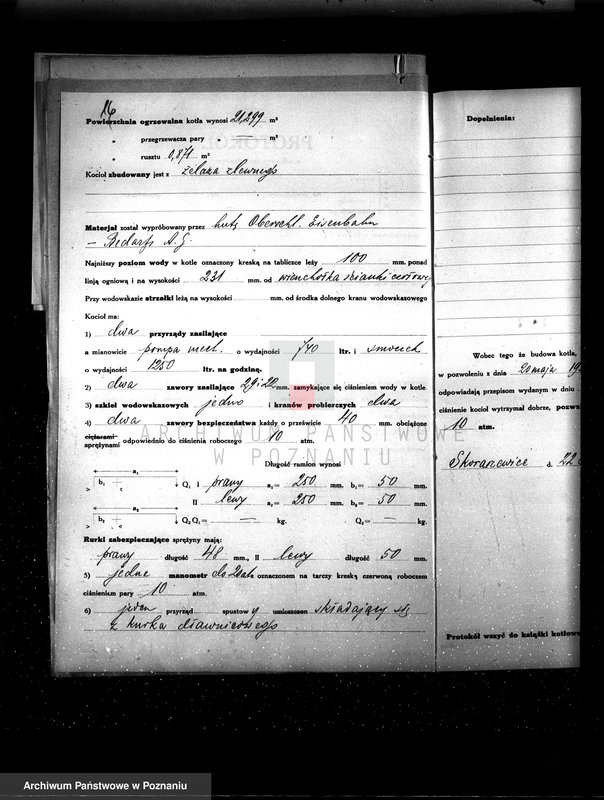 16
Powierzchnia ogrzewalna kotła wynosi 21,299 m²
„ przegrzewacza pary — m²
„ rusztu 0,871 m²
Kocioł zbudowany jest z żelaza zlewnego
Materjał został wypróbowany przez hutę Oberschl. Eisenbahn
– Bedarfs A.G.
Najniższy poziom wody w kotle oznaczony kreską na tabliczce leży 100 mm. ponad
linją ogniową i na wysokości 231 mm. od wierzchołka ścianki czołowej
Przy wodowskazie strzałki leżą na wysokości mm. od środka dolnego kranu wodowskazowego
Kocioł ma:
1) dwa przyrządy zasilające
a mianowicie pompa mech. o wydajności 740 ltr. i smoczek
o wydajności 1250 ltr. na godzinę.
2) dwa zawory zasilające 29 i 22 mm. zamykające się ciśnieniem wody w kotle.
3) szkieł wodowskazowych jedno i kranów probierczych dwa
4) dwa zawory bezpieczeństwa każdy o prześwicie 40 mm. obciążone
ciężarami
sprężynami odpowiednio do ciśnienia roboczego 10 atm.
Długość ramion wynosi
a₁ b₁ Q₁ I prawy a₁= 250 mm. b₁= 50 mm.
II lewy a₂= 250 mm. b₂= 50 mm.
a₂ b₂ Q₂ Q₁= — kg. Q₂= — kg.
Rurki zabezpieczające sprężyny mają:
prawy długość 48 mm., II lewy długość 50 mm.
5) jeden manometr do 20 at. oznaczonem na tarczy kreską czerwoną roboczem
ciśnieniem pary 10 atm.
6) jeden przyrząd spustowy umieszczon składający się
z kurka dławnicowego
Dopełnienia:
Wobec tego że budowa kotła,
w pozwoleniu z dnia 20 maja 19
odpowiadają przepisom wydanym w dniu
ciśnienie kocioł wytrzymał dobrze, pozwa
10 atm.
Skoraszewice d. 22
Protokół wszyć do książki kotłowe
ARCHIWUM PAŃSTWOWE
W POZNANIU
Archiwum Państwowe w Poznaniu